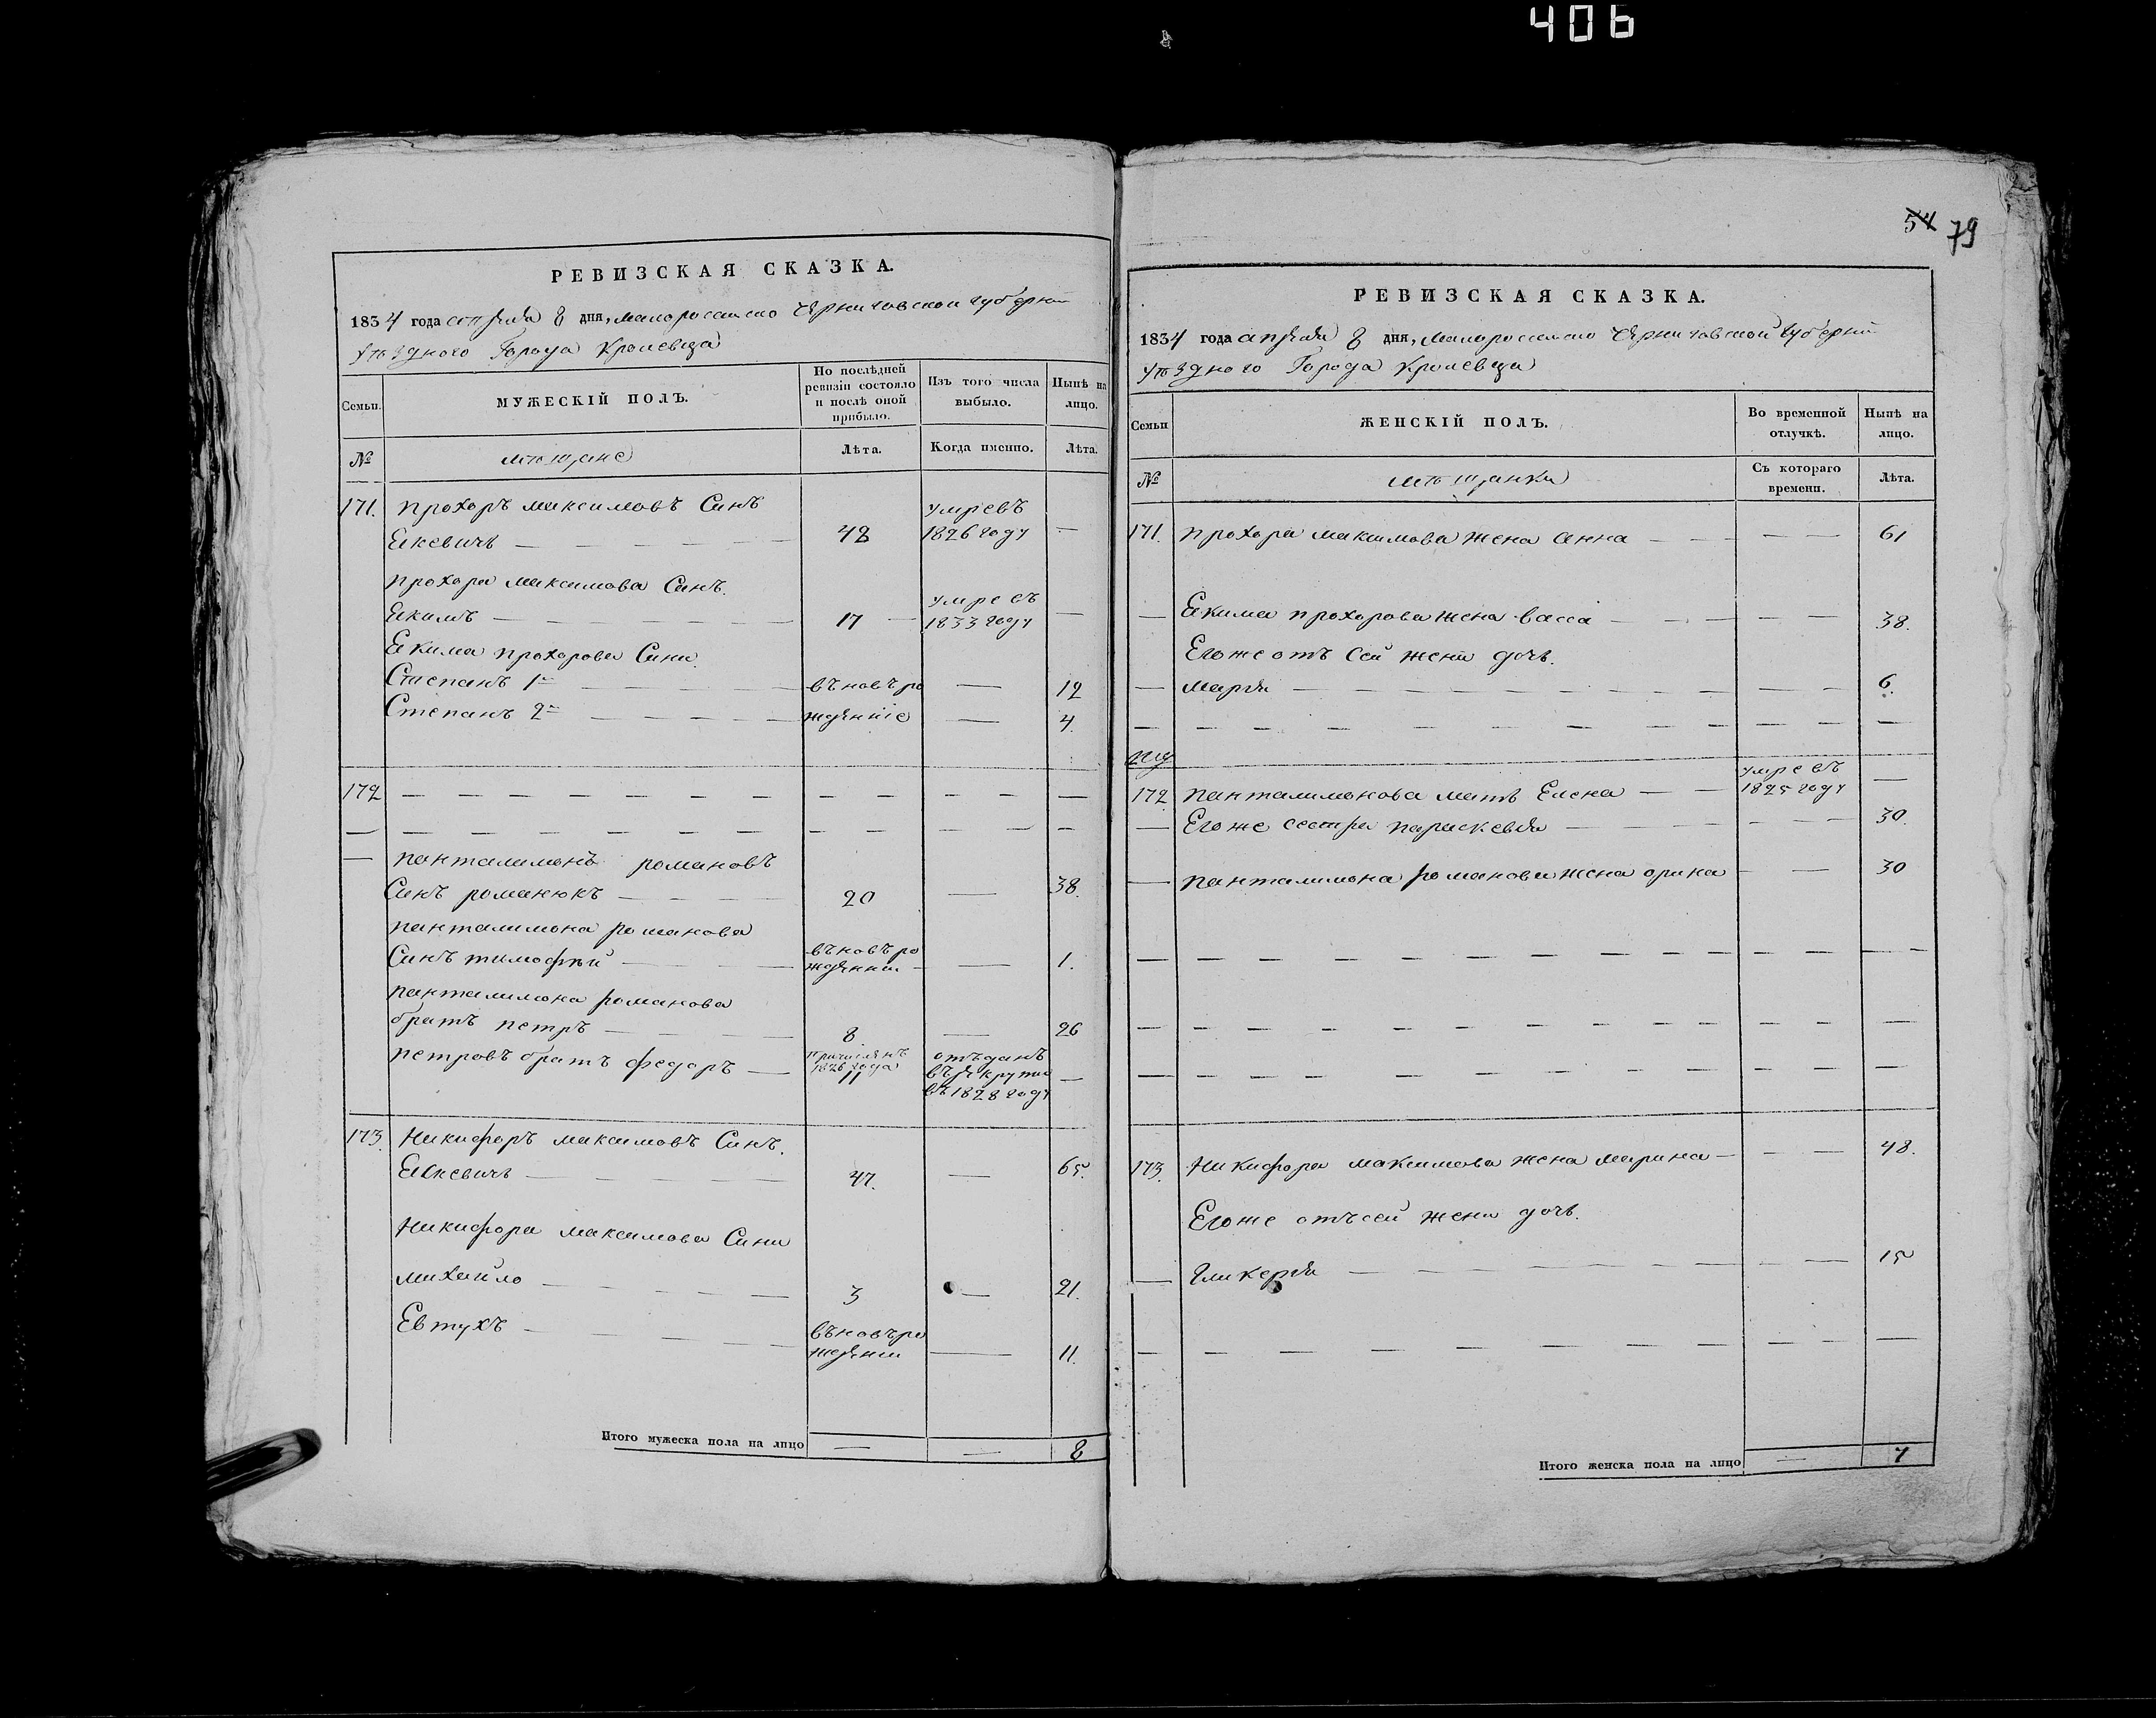 406
54 79
РЕВИЗСКАЯ СКАЗКА.
1834 года апреля 8 дня, малороссийско Черниговской губернии
уѣздного Города Кролевца
Семьи.
МУЖЕСКІЙ ПОЛЪ.
По послѣдней ревизіи состояло и послѣ оной прибыло.
Изъ того числа выбыло.
Нынѣ на лицо.
№
мѣщане
Лѣта.
Когда именно.
Лѣта.
171. прохоръ максимовъ Синъ умревъ
48 1826 году —
прохора максимова Синъ.
умревъ
Екимъ — 17 — 1833 году —
Екима прохорова Сини.
Степанъ 1й — въновъро — 12
Степанъ 2й — жденніе — 4.
172 — — — — —
— — — — —
— панталимонъ романовъ
Синъ романюкъ — 20 — 38.
панталимона романова
Синъ тимофѣй — въновъро
жденнии — 1.
панталимона романова
братъ петръ — 8. — 26
петровъ братъ федоръ — причисленъ 1826 года 11 отъданъ
въ рекруты —
въ 1828 году
173. Никифоръ максимовъ Синъ.
47. — 65.
Никифора максимова Сини
михайло — 3 — 21.
Евтухъ — въновъро
ждении — 11.
Итого мужеска пола на лицо — — 8
РЕВИЗСКАЯ СКАЗКА.
1834 года апреля 8 дня, малороссийско Черниговской губернии
уѣздного Города Кролевца
Семьи
ЖЕНСКІЙ ПОЛЪ.
Во временной отлучкѣ.
Нынѣ на лицо.
№
мѣщанки
Съ котораго времени.
Лѣта.
171. прохора максимова жена анна — — 61
— Екима прохорова жена васса — — 38.
Егоже отъ Сей жени дочь.
— марія — — 6.
— — — — —
умревъ
172 панталимонова мать Елена — 1825 году —
— Егоже сестра параскевія — — 30.
— панталимона романова жена орина — — 30
— — — — —
— — — — —
— — — — —
173. Никифора максимова жена марина — — 48.
Егоже отъ сей жени дочь.
— Гликерія — — 15
— — — — —
Итого женска пола на лицо — 7